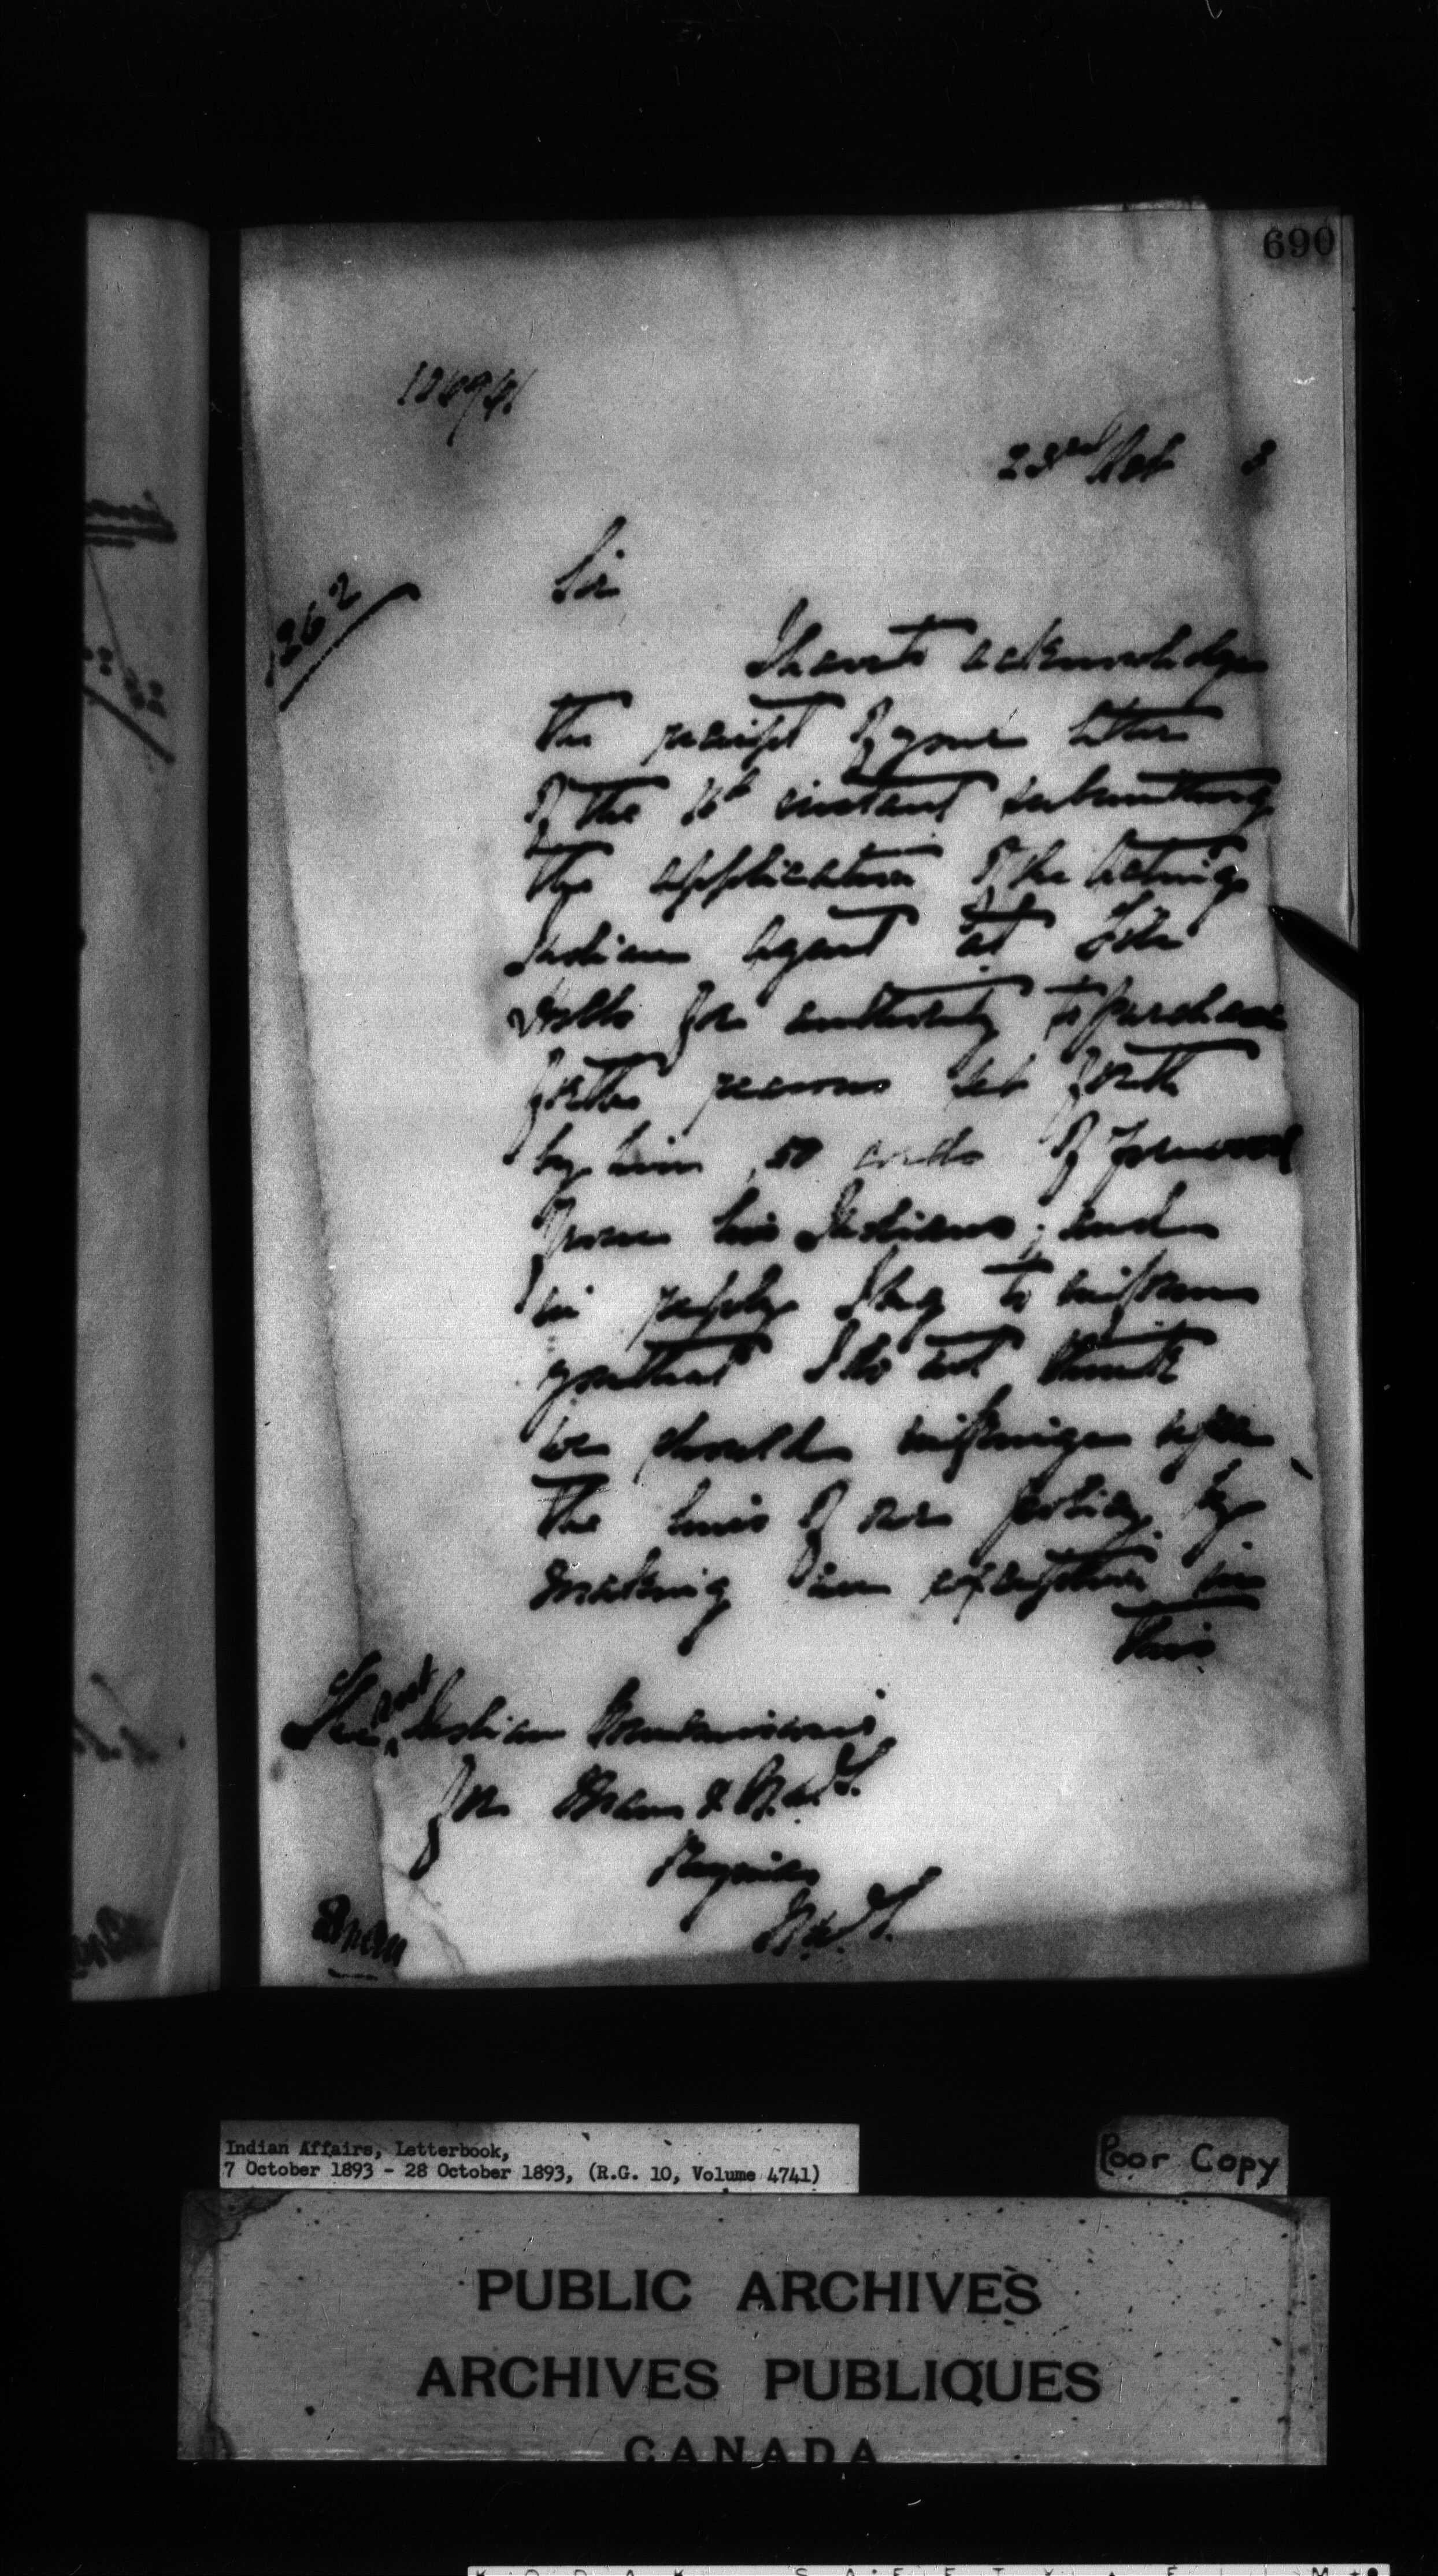 690
23rd Oct 3
262
Sir
I have to acknowledge
the receipt of your letter
of the instant submitting
the application of the Acting
Indian Agent at File
Hills for authority to purchase
for the reasons set forth
by him, 50 cords of firewood
from his Indians; and
in reply I beg to inform
you that I do not think
we should infringe upon
the lines of our policy by
making an exception in
this
The Asst Indian Commissioner
for Man & N.W.T.
Regina
N.W.T.
Indian Affairs, Letterbook,
7 October 1893 - 28 October 1893, (R.G. 10, Volume 4741)
Poor Copy
PUBLIC ARCHIVES
ARCHIVES PUBLIQUES
CANADA
KODAK SAFETY